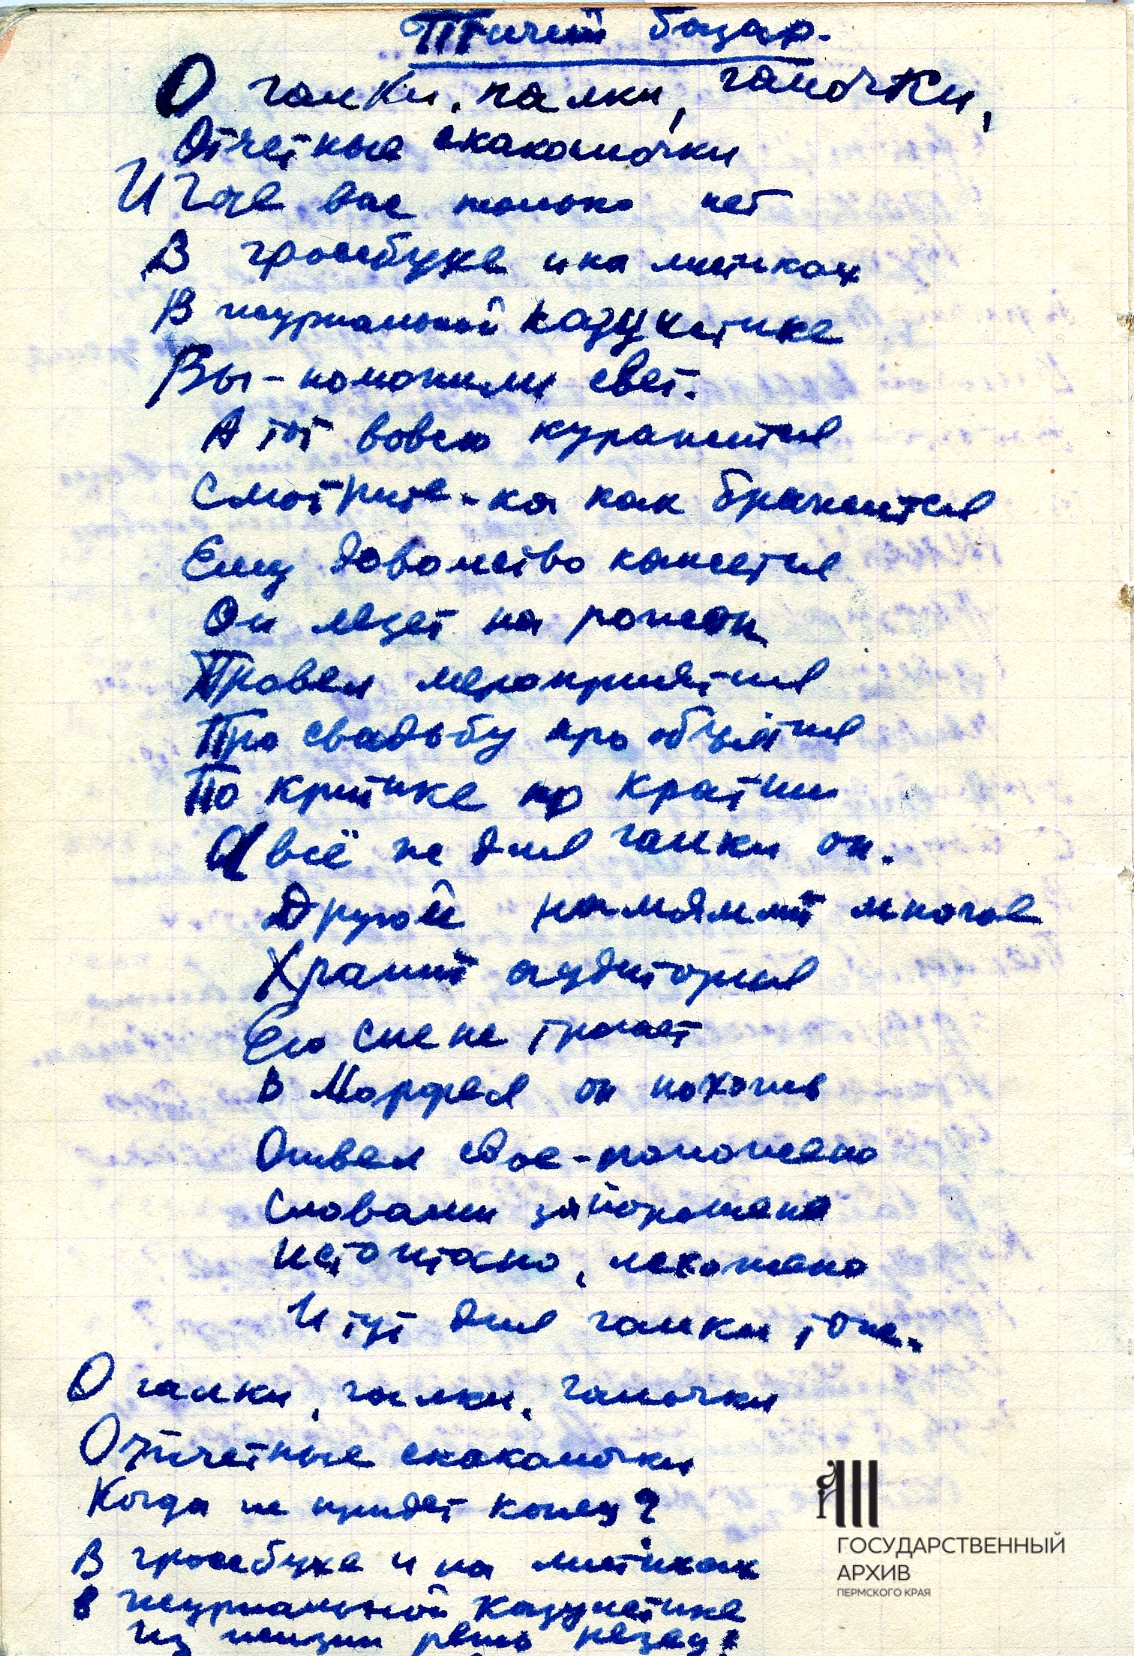 Птичий базар.
О галки, палки, галочки,
Отчетные скакалочки
И где вас только нет
В гроссбухе и на листиках
В журнальной казуистике
Вы - полонили свет.
А тот вовсю куражится
Смотрите-ка как бражится
Ему довольство кажется
Он лезет на рожон
Провел мероприятия
Про свадьбу про объятия
По критике по кратии
А всё же для галки он.
Другой намямлит многое
Хранит аудитория
Его сие не трогает
В Морфея он похож
Отвел свое - положено
Словами запорошено
Истоптано, исхожено
И тут для галки тоже.
О галки, галки, галочки
Отчетные скакалочки
Когда же придет конец?
В гроссбухе и на листиках
В журнальной казуистике
Из жизни
ГОСУДАРСТВЕННЫЙ
АРХИВ
ПЕРМСКОГО КРАЯ